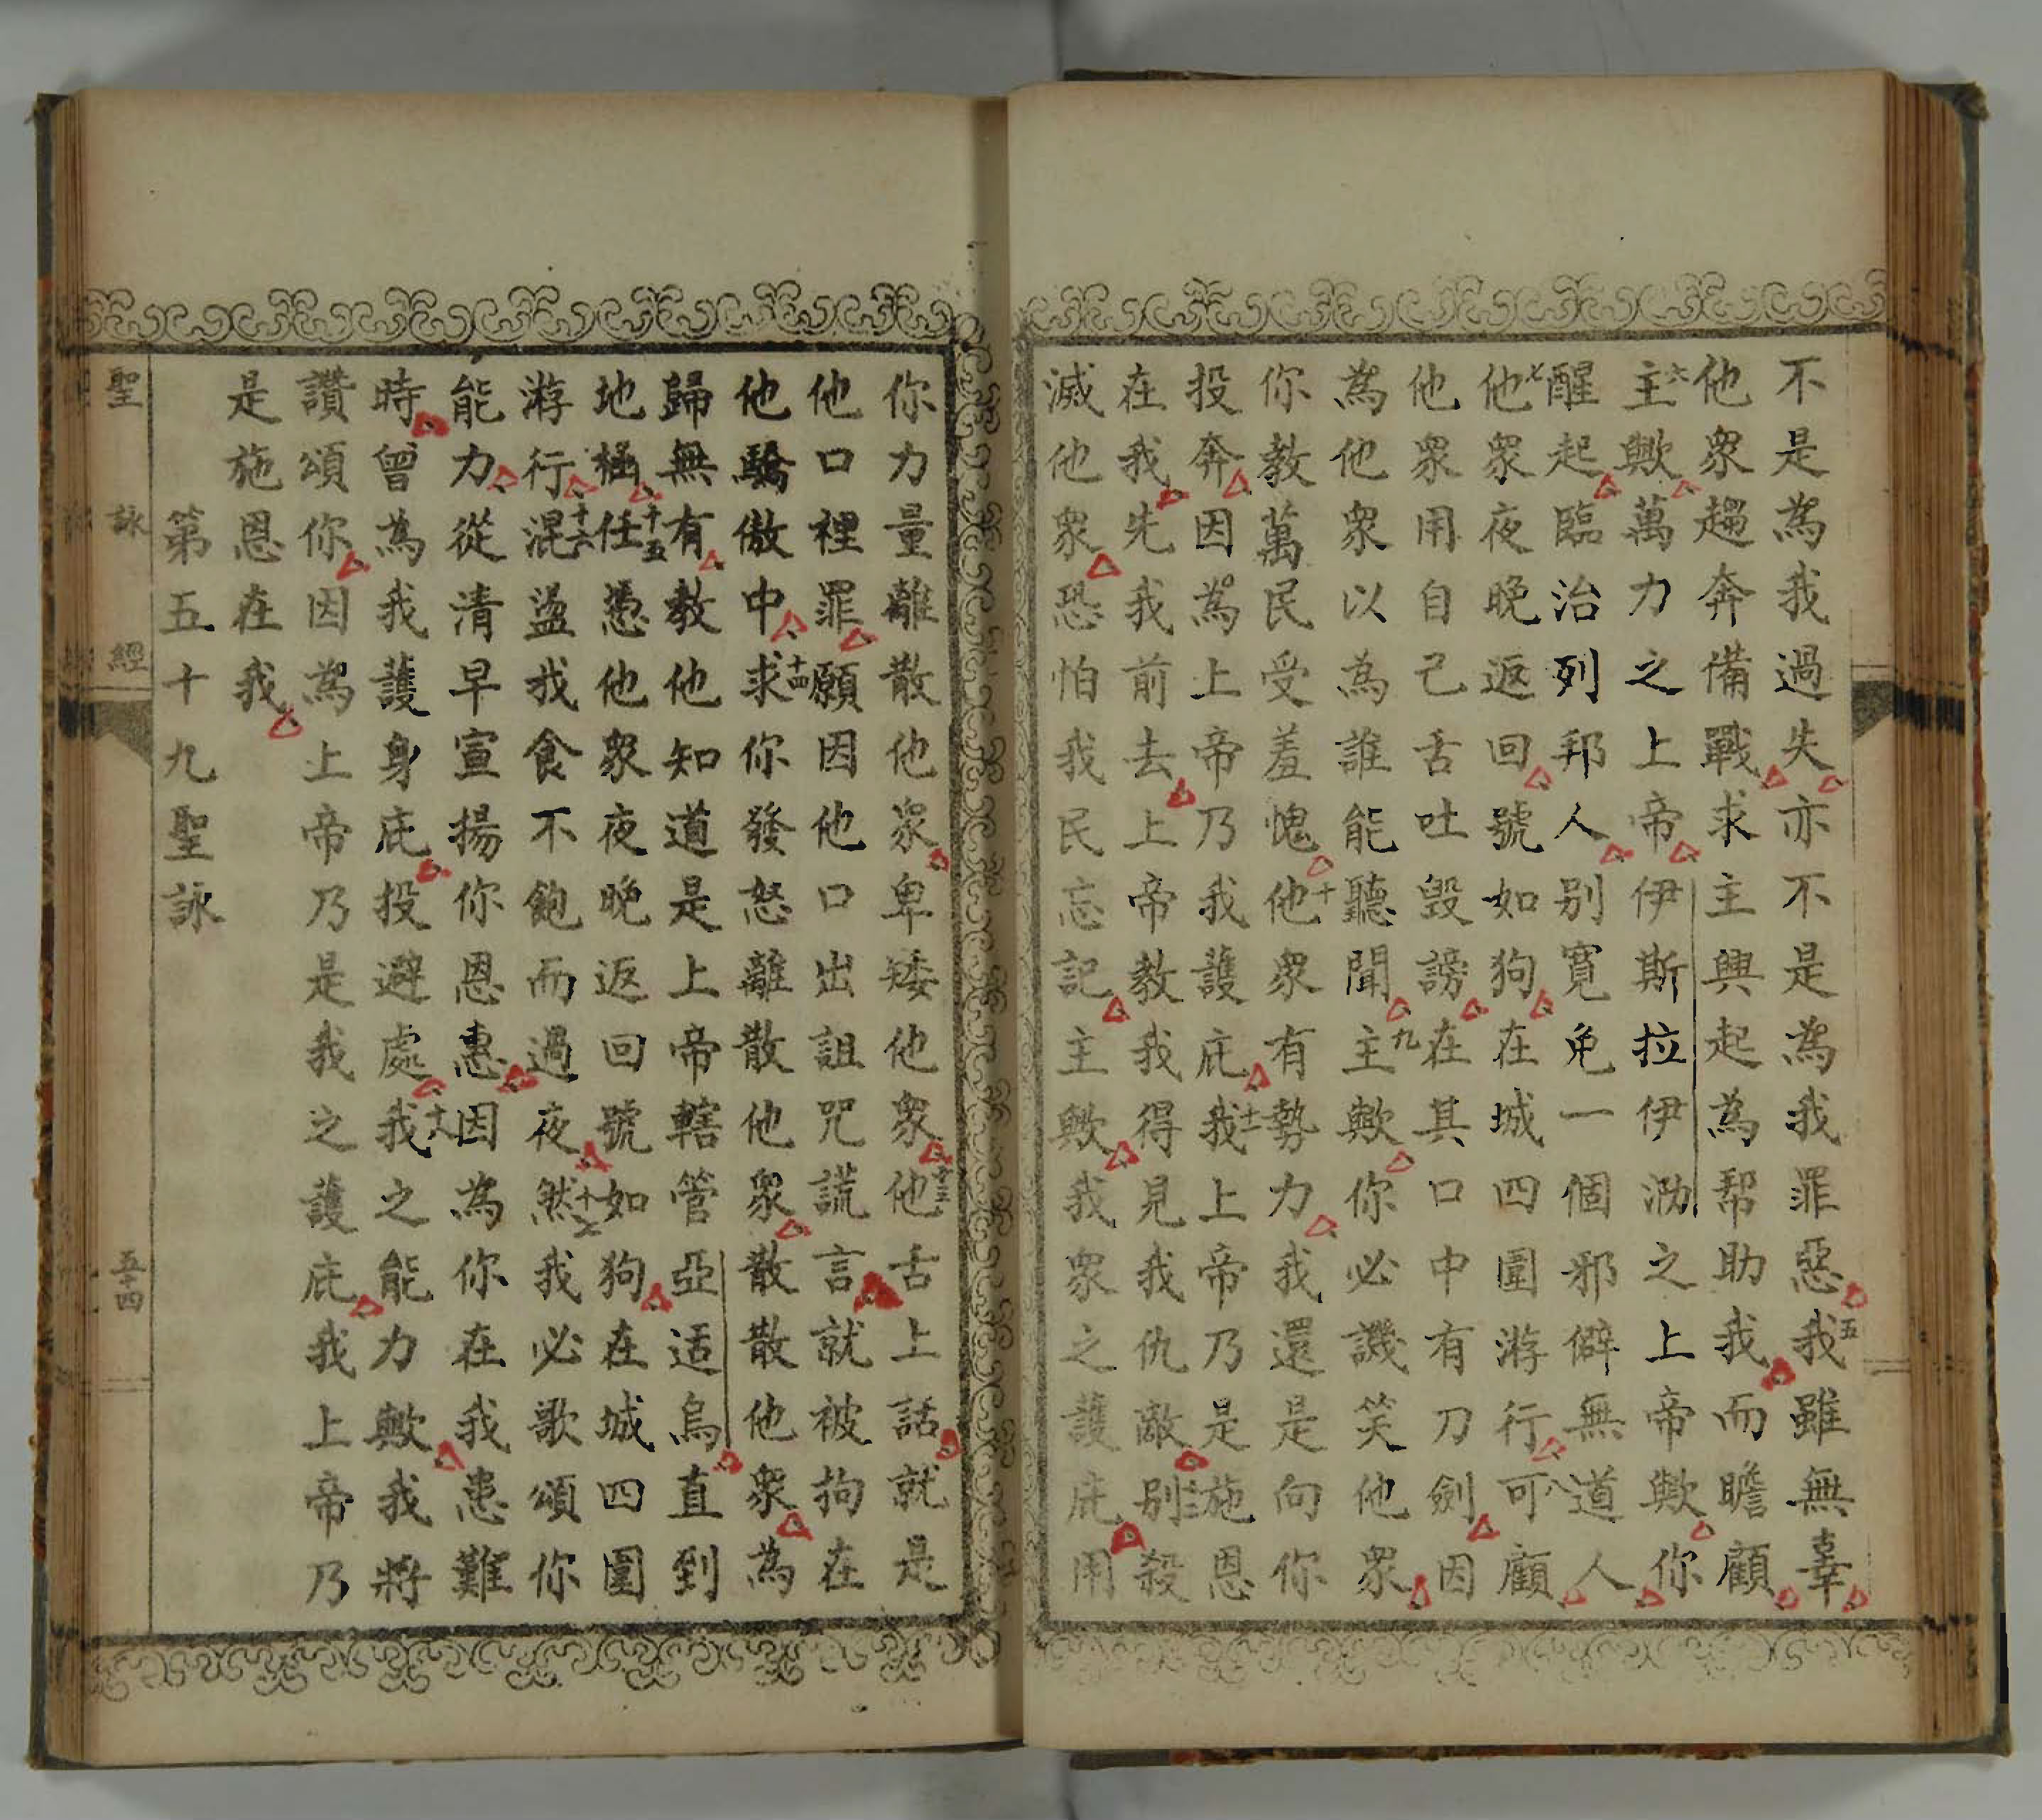 不是為我過失亦不是為我罪惡五我雖無辜
他衆趨奔備戰求主興起為幫助我而瞻顧
六主歟萬力之上帝伊斯拉伊泐之上帝歟你
醒起臨治列邦人別寬免一個邪僻無道人
七他衆夜晚返回號如狗在城四圍游行八可顧
他衆用自己舌吐毀謗在其口中有刀劍因
為他衆以為誰能聽聞九主歟你必譏笑他衆
你教萬民受羞愧十他衆有勢力我還是向你
投奔因為上帝乃我護庇十一我上帝乃是施恩
在我先我前去上帝教我得見我仇敵十二別殺
滅他衆恐怕我民忘記主歟我衆之護庇用
你力量離散他衆卑矮他衆十三他舌上話就是
他口裡罪願因他口出詛咒謊言就被拘在
他驕傲中十四求你發怒離散他衆散散他衆為
歸無有教他知道是上帝轄管亞适烏直到
地極十五任憑他衆夜晚返回號如狗在城四圍
游行十六混盪我食不飽而過夜十七然我必歌頌你
能力從清早宣揚你恩惠因為你在我患難
時曾為我護身庇投避處十八我之能力歟我將
讚頌你因為上帝乃是我之護庇我上帝乃
是施恩在我
第五十九聖詠
聖詠經
五十四